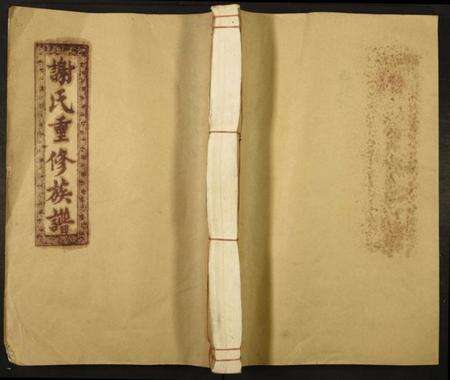 謝氏重修族譜